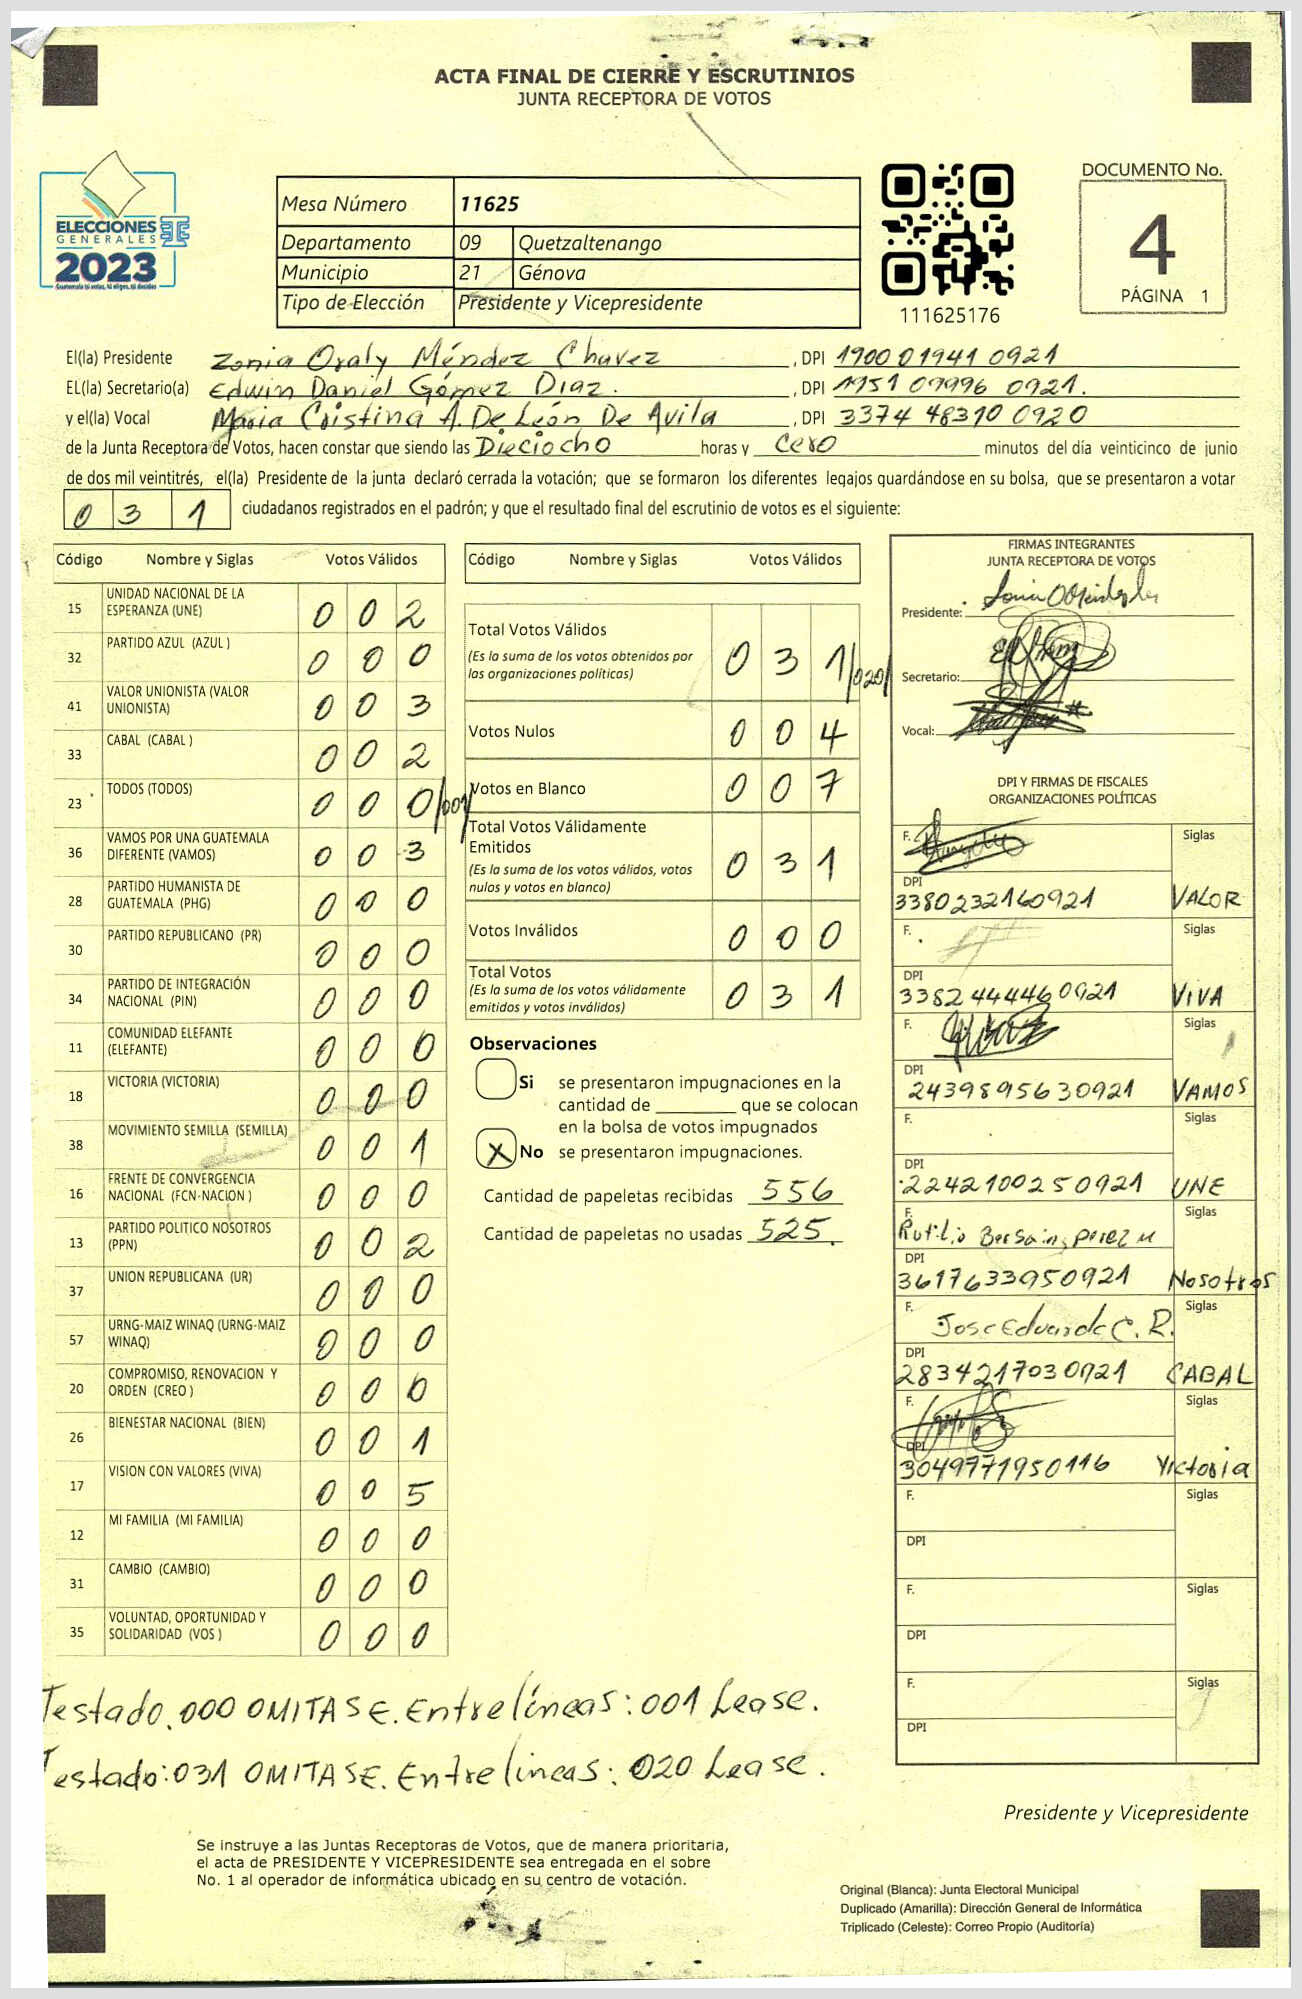 ACTA FINAL DE CIERRE Y ESCRUTINIOS
JUNTA RECEPTORA DE VOTOS
ELECCIONES
GENERALES
2023
Mesa Número 11625
Departamento 09 Quetzaltenango
Municipio 21 Génova
Tipo de Elección Presidente y Vicepresidente
111625176
DOCUMENTO No.
4
PÁGINA 1
El(la) Presidente Zonia Oraly Méndez Chavez, DPI 1900 01941 0921
EL(la) Secretario(a) Edwin Daniel Gómez Diaz., DPI 1951 09996 0921.
y el(la) Vocal Maria Cristina A. De León De Avila, DPI 3374 48310 0920
de la Junta Receptora de Votos, hacen constar que siendo las Dieciocho horas y cero minutos del día veinticinco de junio
de dos mil veintitrés, el(la) Presidente de la junta declaró cerrada la votación; que se formaron los diferentes legajos quardándose en su bolsa, que se presentaron a votar
0 3 1 ciudadanos registrados en el padrón; y que el resultado final del escrutinio de votos es el siguiente:
Código Nombre y Siglas Votos Válidos
15 UNIDAD NACIONAL DE LA ESPERANZA (UNE) 0 0 2
32 PARTIDO AZUL (AZUL ) 0 0 0
41 VALOR UNIONISTA (VALOR UNIONISTA) 0 0 3
33 CABAL (CABAL ) 0 0 2
23 TODOS (TODOS) 0 0 0/001/
36 VAMOS POR UNA GUATEMALA DIFERENTE (VAMOS) 0 0 3
28 PARTIDO HUMANISTA DE GUATEMALA (PHG) 0 0 0
30 PARTIDO REPUBLICANO (PR) 0 0 0
34 PARTIDO DE INTEGRACIÓN NACIONAL (PIN) 0 0 0
11 COMUNIDAD ELEFANTE (ELEFANTE) 0 0 0
18 VICTORIA (VICTORIA) 0 0 0
38 MOVIMIENTO SEMILLA (SEMILLA) 0 0 1
16 FRENTE DE CONVERGENCIA NACIONAL (FCN-NACION ) 0 0 0
13 PARTIDO POLITICO NOSOTROS (PPN) 0 0 2
37 UNION REPUBLICANA (UR) 0 0 0
57 URNG-MAIZ WINAQ (URNG-MAIZ WINAQ) 0 0 0
20 COMPROMISO, RENOVACION Y ORDEN (CREO ) 0 0 0
26 BIENESTAR NACIONAL (BIEN) 0 0 1
17 VISION CON VALORES (VIVA) 0 0 5
12 MI FAMILIA (MI FAMILIA) 0 0 0
31 CAMBIO (CAMBIO) 0 0 0
35 VOLUNTAD, OPORTUNIDAD Y SOLIDARIDAD (VOS ) 0 0 0
Código Nombre y Siglas Votos Válidos
Total Votos Válidos 0 3 1/020/
(Es la suma de los votos obtenidos por
las organizaciones políticas)
Votos Nulos 0 0 4
Votos en Blanco 0 0 7
Total Votos Válidamente
Emitidos 0 3 1
(Es la suma de los votos válidos, votos
nulos y votos en blanco)
Votos Inválidos 0 0 0
Total Votos 0 3 1
(Es la suma de los votos válidamente
emitidos y votos inválidos)
Observaciones
Si se presentaron impugnaciones en la
cantidad de ________ que se colocan
en la bolsa de votos impugnados
X No se presentaron impugnaciones.
Cantidad de papeletas recibidas 556
Cantidad de papeletas no usadas 525.
FIRMAS INTEGRANTES
JUNTA RECEPTORA DE VOTOS
Presidente:
Secretario:
Vocal:
DPI Y FIRMAS DE FISCALES
ORGANIZACIONES POLÍTICAS
F. Siglas
DPI
3380232160921 VALOR
F. Siglas
DPI
3382444460921 VIVA
F. Siglas
DPI
2439895630921 VAMOS
F. Siglas
DPI
2242100250921 UNE
F. Rutilio Bersain perez M Siglas
DPI
3617633950921 Nosotros
F. Jose Eduardo C. R. Siglas
DPI
2834217030921 CABAL
F. Siglas
DPI
3049771950116 Victoria
F. Siglas
DPI
F. Siglas
DPI
F. Siglas
DPI
Testado.000 OMITASE. Entrelíneas: 001 Lease.
Testado:031 OMITASE. Entrelineas: 020 Lease.
Presidente y Vicepresidente
Se instruye a las Juntas Receptoras de Votos, que de manera prioritaria,
el acta de PRESIDENTE Y VICEPRESIDENTE sea entregada en el sobre
No. 1 al operador de informática ubicado en su centro de votación.
Original (Blanca): Junta Electoral Municipal
Duplicado (Amarilla): Dirección General de Informática
Triplicado (Celeste): Correo Propio (Auditoría)